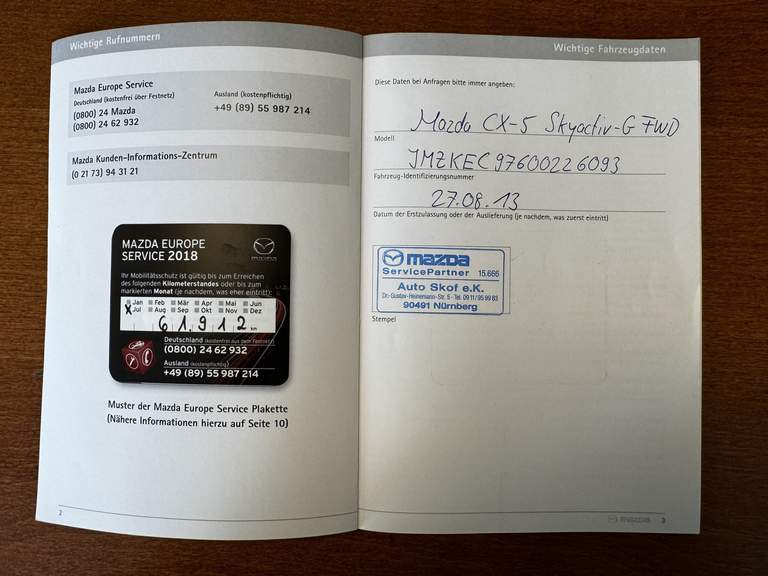 Wichtige Rufnummern
Mazda Europe Service
Deutschland (kostenfrei über Festnetz)
(0800) 24 Mazda
(0800) 24 62 932
Ausland (kostenpflichtig)
+49 (89) 55 987 214
Mazda Kunden-Informations-Zentrum
(0 21 73) 94 31 21
MAZDA EUROPE
SERVICE 2018
Ihr Mobilitätsschutz ist gültig bis zum Erreichen
des folgenden Kilometerstandes oder bis zum
markierten Monat (je nachdem, was eher eintritt):
Jan Feb Mär Apr Mai Jun
X Jul Aug Sep Okt Nov Dez
61.912 km
Deutschland (kostenfrei aus dem Festnetz)
(0800) 24 62 932
Ausland (kostenpflichtig)
+49 (89) 55 987 214
Muster der Mazda Europe Service Plakette
(Nähere Informationen hierzu auf Seite 10)
2
Wichtige Fahrzeugdaten
Diese Daten bei Anfragen bitte immer angeben:
Mazda CX-5 Skyactiv-G FWD
Modell
JMZKEC97600226093
Fahrzeug-Identifizierungsnummer
27.08.13
Datum der Erstzulassung oder der Auslieferung (je nachdem, was zuerst eintritt)
mazda
ServicePartner 15.666
Auto Skof e.K.
Dr.-Gustav-Heinemann-Str. 5 - Tel. 0911/95 99 83
90491 Nürnberg
Stempel
mazda 3